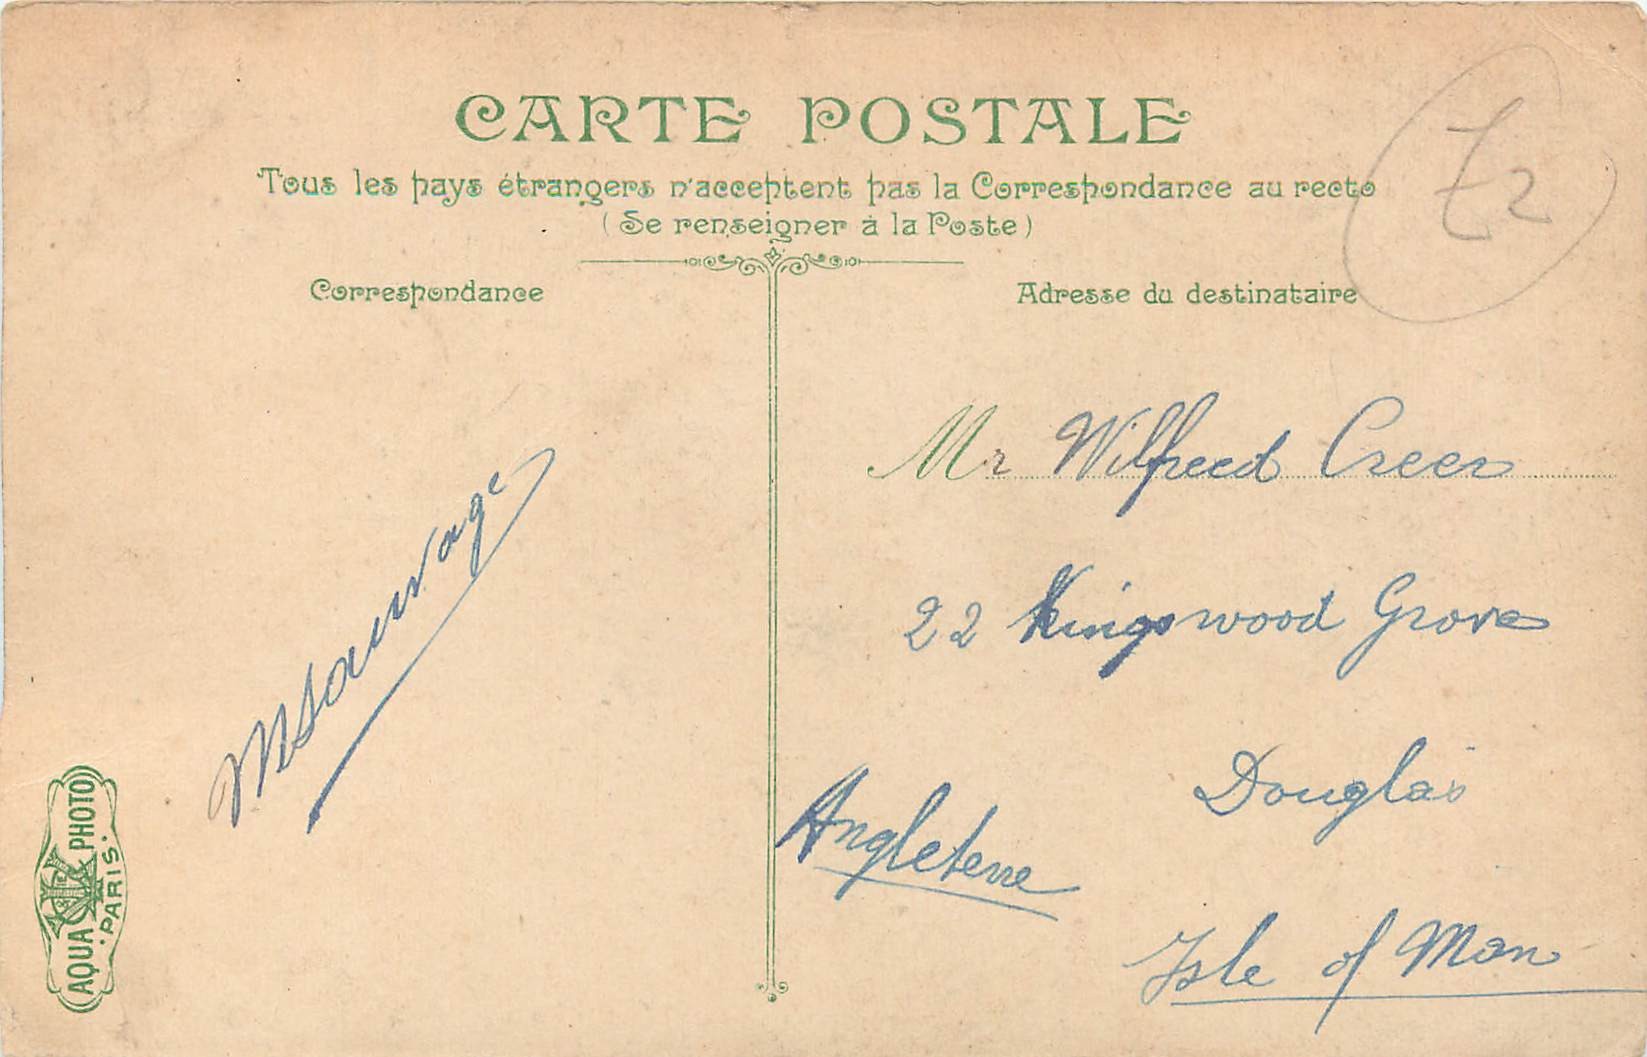 CARTE POSTALE
Tous les pays étrangers n'acceptent pas la Correspondance au recto
(Se renseigner à la Poste)
Correspondance
Adresse du destinataire
Mr Wilfred Creer
22 Kingswood Grove
Douglas
Angleterre
Isle of Man
MSauvage
AQUA PHOTO
PARIS